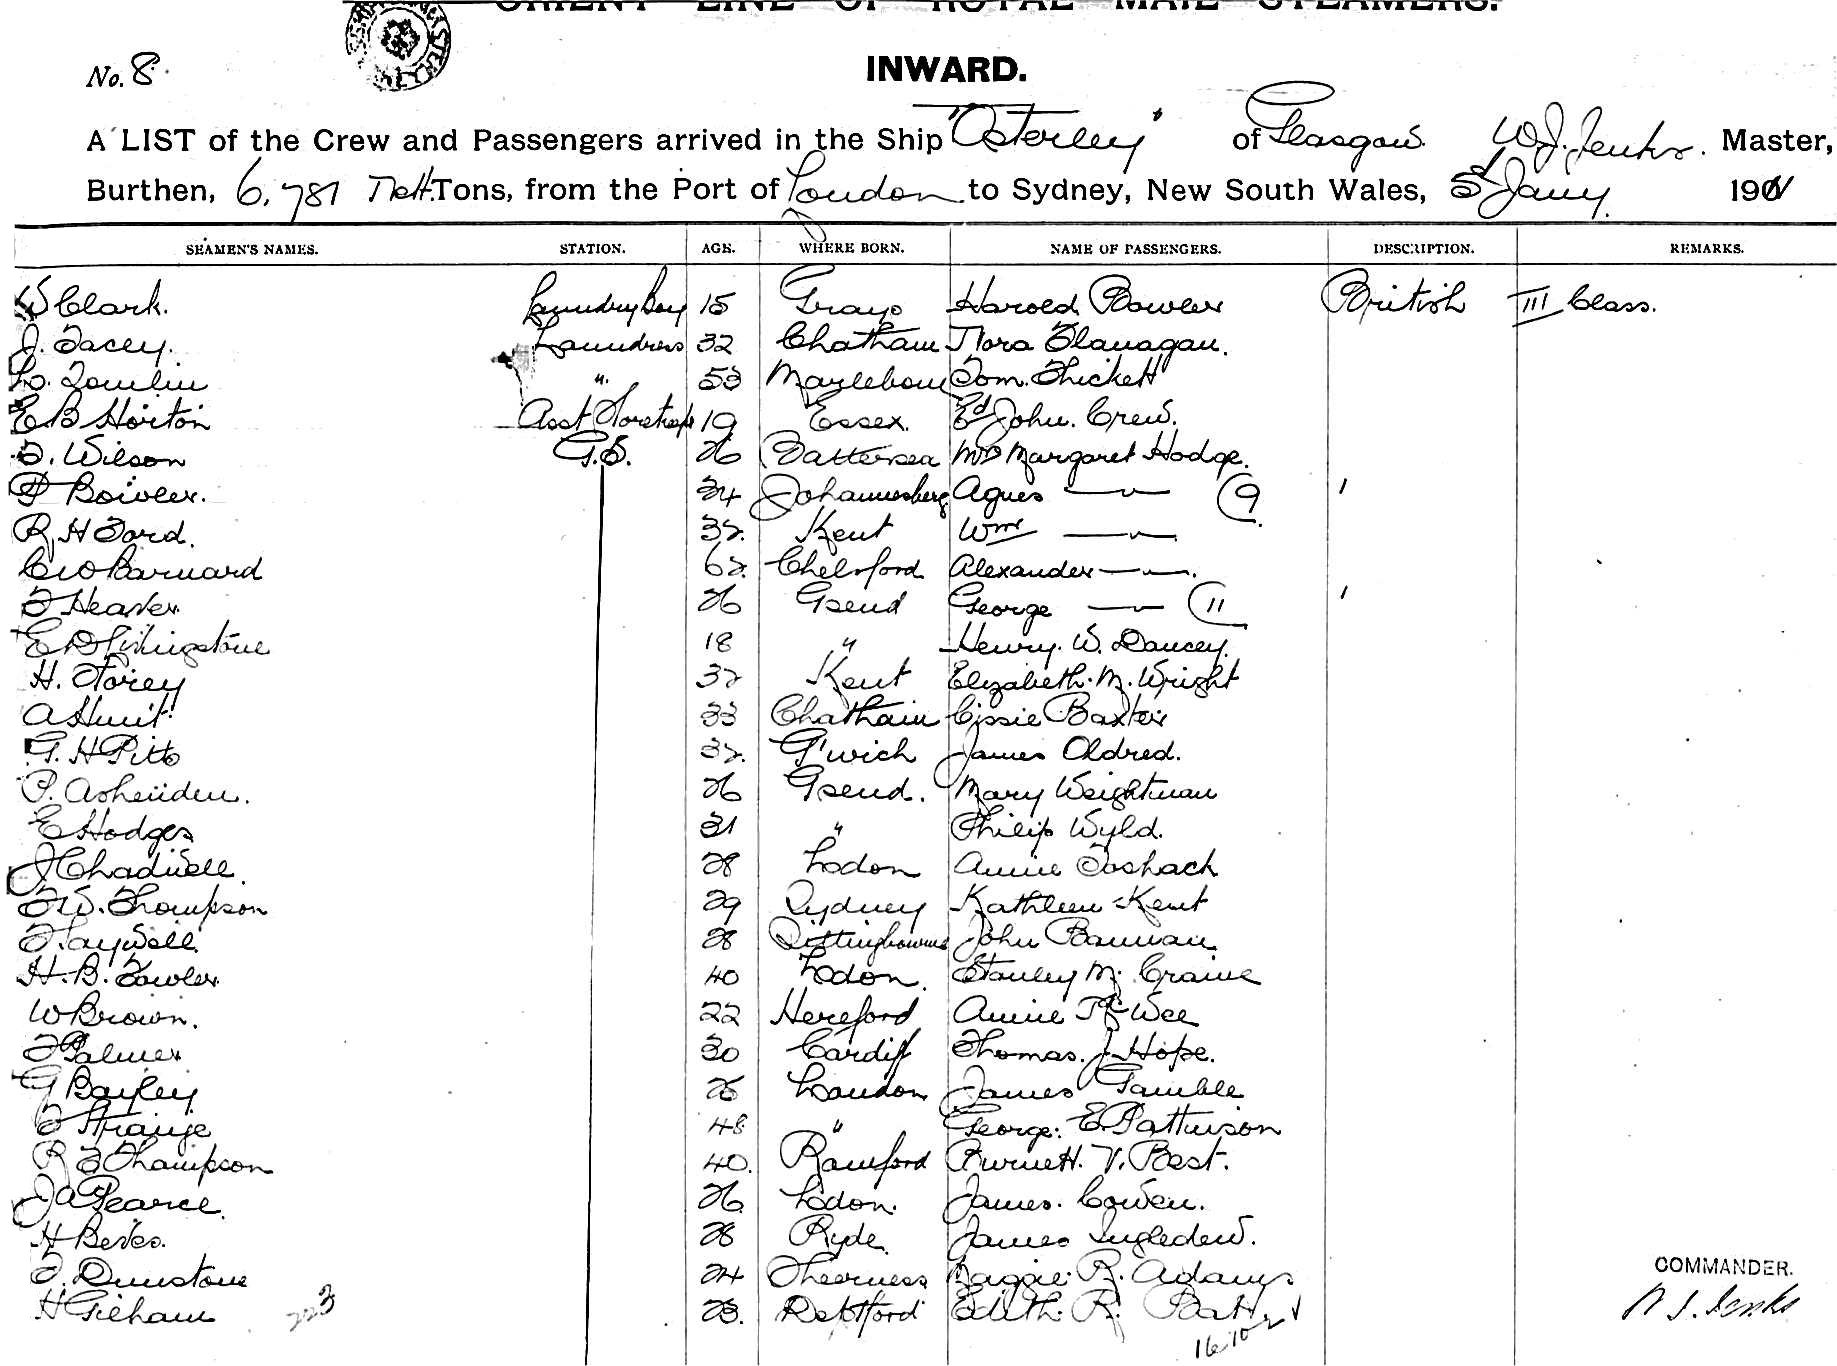 ORIENT LINE OF ROYAL MAIL STEAMERS.
No. 8.
INWARD.
A LIST of the Crew and Passengers arrived in the Ship "Osterley" of Glasgow. W.J. Jenks. Master,
Burthen, 6,781 Nett. Tons, from the Port of London to Sydney, New South Wales, 5th Jany. 1911
SEAMEN'S NAMES. STATION. AGE. WHERE BORN. NAME OF PASSENGERS. DESCRIPTION. REMARKS.
W Clark. Laundry Boy 15 Grays Harold Bowler British III Class.
J. Facey. Laundress 32 Chatham Nora Flanagan.
Tomlin " 53 Marylebone Tom. Thickett
E B Horton Asst Storekeep 19 Essex. Ed John. Crew.
F. Wilson G.S. 26 Battersea Mrs Margaret Hodge.
Bowler. 24 Johannesberg Agnes —"— (9 1
R. H Ford. 32. Kent Wm —"—
C W Barnard 62. Chelsford Alexander —"—.
F Heaver 26 Gsend George —"— (11 1
E D Livingstone 18 " Henry. W. Dancey.
H. Storey 32 Kent Elizabeth. M. Wright
A Hunt 33 Chatham Cissie Baxter
G. H Pitts 32. G'wich James Oldred.
P. Ashenden. 26 Gsend. Mary Weightman
E Hodges 31 " Philip Wyld.
J Chadwell. 28 Lodon Annie Toshack
F W. Thompson 29 Sydney Kathleen Kent
F Taywell 28 Sittingbourne John Bannan
H. B. Fowler 40 Lodon. Stanley M. Craine
W Brown. 22 Hereford Annie McWee
F Palmer 30 Cardiff Thomas. J. Hope.
G Bayley 26 London James Gamble
Strange 48 " George. E. Pattinson
R F Thompson 40. Romford Burnett. V. Best.
J A Pearce. 26 Lodon. James. Cowen.
H Beves. 28 Ryde James Ingledew.
F. Dunstone 24 Sheerness Maggie. R. Adams
H Gilham 23. Deptford Edith. R. Batt.
COMMANDER.
223
W. J. Jenks
16.10.2